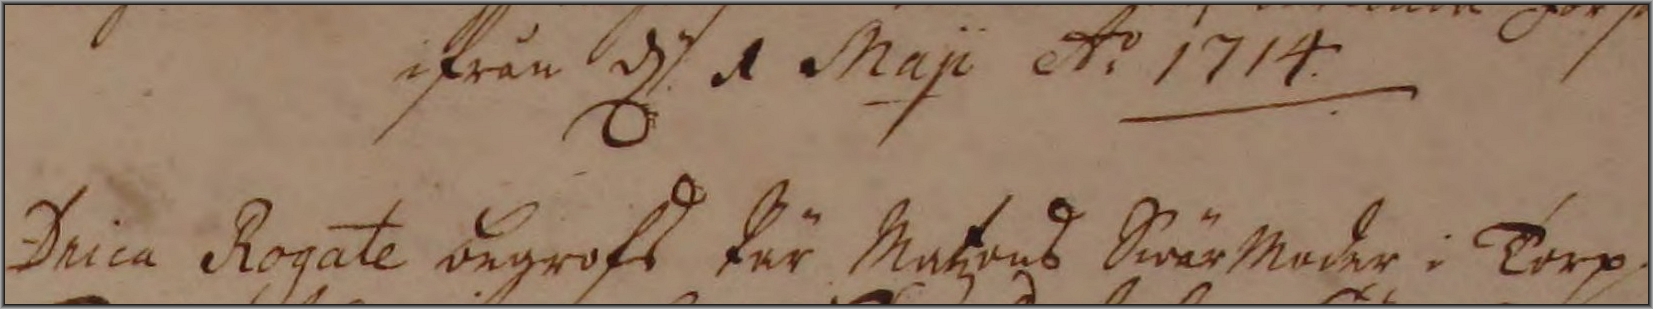 ifrån d. 1 Maji Ao 1714.
Dnica Rogate begrofs Pär Matsons Swär Moder i Torp.